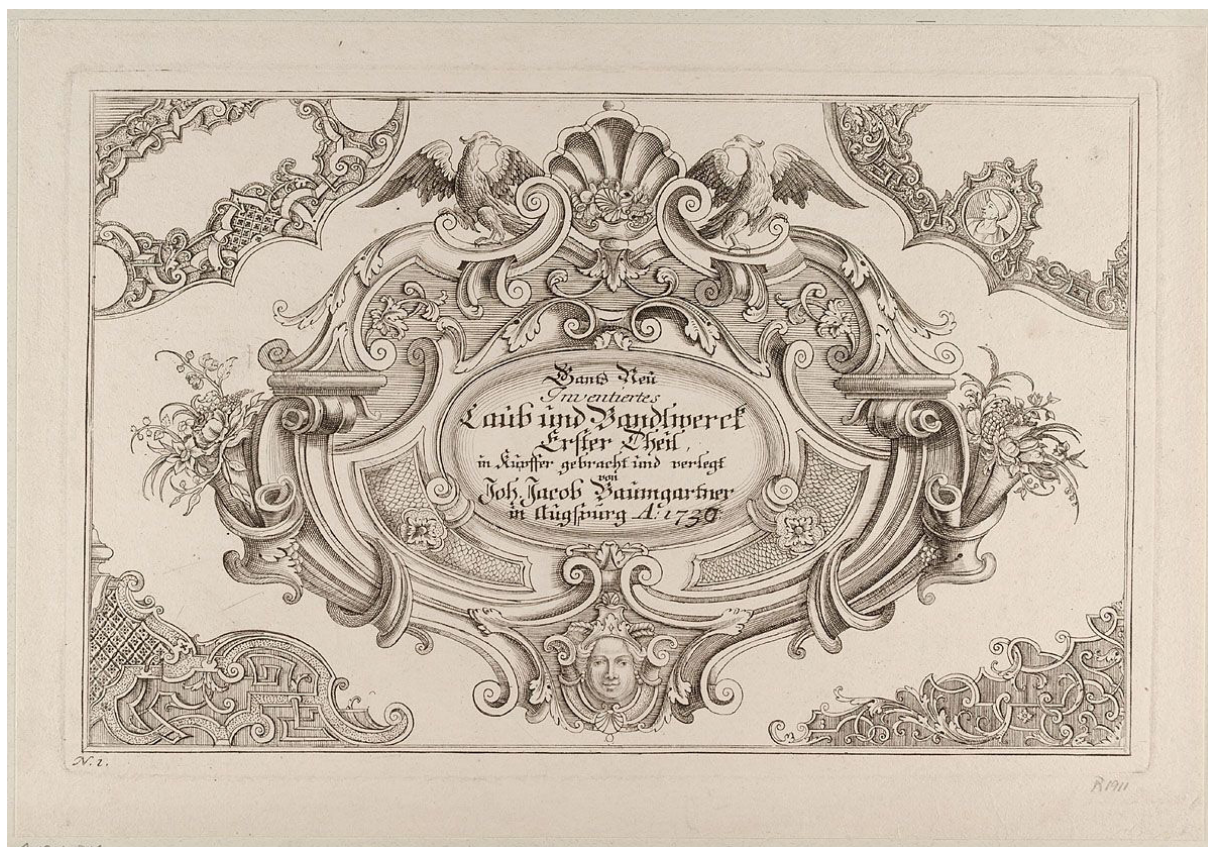 Gants Neü
Inventiertes
Laub und Bandlwerck
Erster Theil,
in Kupffer gebracht und verlegt
von
Joh. Jacob Baumgartner
in Augspurg Aͦ: 1730
N. 1.
R 1911